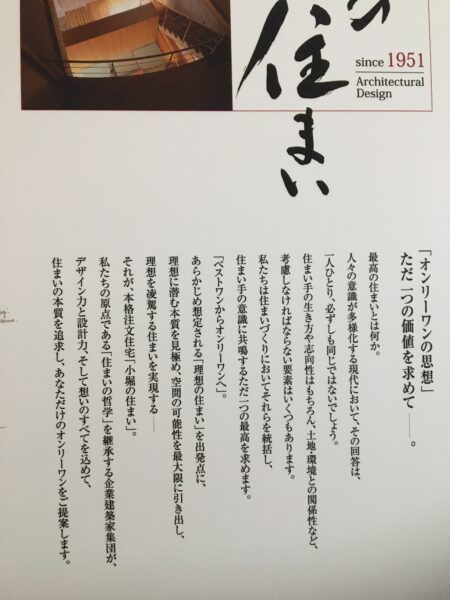 住まい
since 1951
Architectural
Design
「オンリーワンの思想」
ただ一つの価値を求めて――。
最高の住まいとは何か。
人々の意識が多様化する現代において、その回答は、
一人ひとり、必ずしも同じではないでしょう。
住まい手の生き方や志向性はもちろん、土地・環境との関係性など、
考慮しなければならない要素はいくつもあります。
私たちは住まいづくりにおいてそれらを統括し、
住まい手の意識に共鳴するただ一つの最高を求めます。
「ベストワンからオンリーワンへ」。
あらかじめ想定される「理想の住まい」を出発点に、
理想に潜む本質を見極め、空間の可能性を最大限に引き出し、
理想を凌駕する住まいを実現する――
それが、本格注文住宅「小堀の住まい」。
私たちの原点である「住まいの哲学」を継承する企業建築家集団が、
デザイン力と設計力、そして想いのすべてを込めて、
住まいの本質を追求し、あなただけのオンリーワンをご提案します。